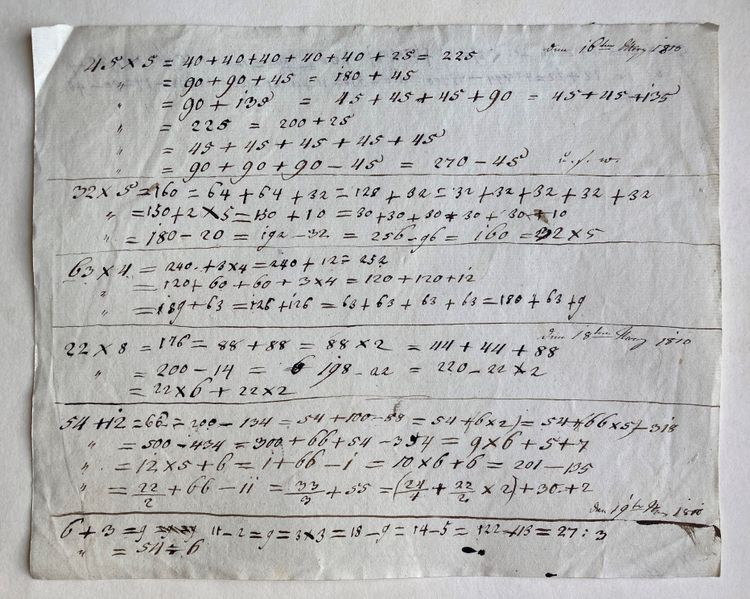 45 × 5 = 40+40+40+40+40+25 = 225 den 16ten 1810
" = 90+90+45 = 180+45
" = 90+135 = 45+45+45+90 = 45+45+135
" = 225 = 200+25
" = 45+45+45+45+45
" = 90+90+90-45 = 270-45 u.s.w.
32×5=160=64+64+32=128+32=32+32+32+32+32
" =150+2×5=150+10=30+30+30+30+30+10
" =180-20=192-32=256-96=160=32×5
63×4=240+3×4=240+12=252
" =120+60+60+3×4=120+120+12
" =189+63=126+126=63+63+63+63=180+63+9
22×8=176=88+88=88×2=44+44+88 den 18ten 1810
" =200-14= 198-22=220-22×2
=22×6+22×2
54+12=66=200-134=54+100-88=54+(6×2)=54+(66×5)-318
" =500-434=300+66+54-354=9×6+5+7
" =12×5+6=1+66-1=10×6+6=201-135
" =22/2+66-11=33/3+55=(24/4+22/2×2)+30+2
den 19ten 1810
6+3=9 11-2=9=3×3=18-9=14-5=122-113=27:3
" =54÷6